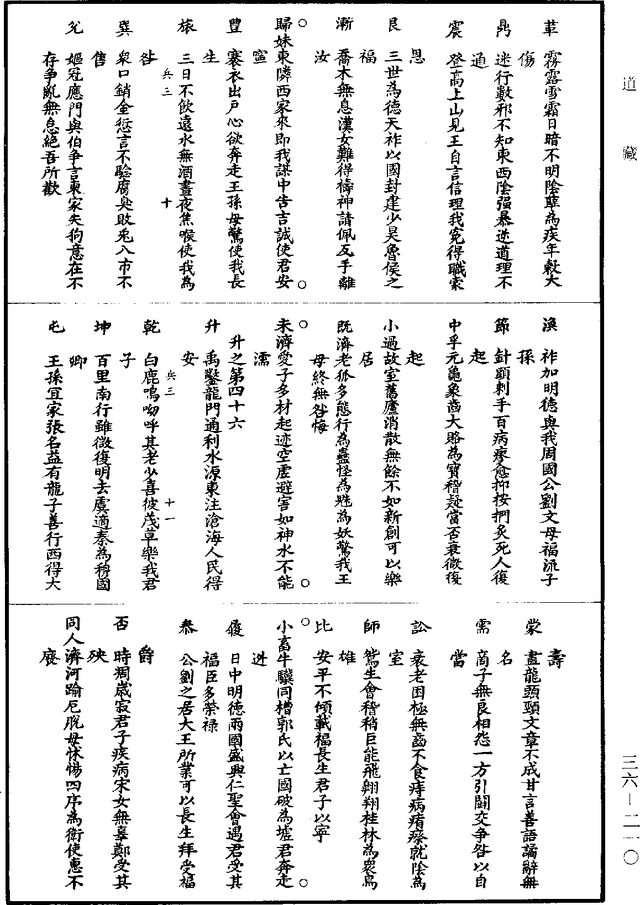 道藏
革　霧露雪霜日暗不明陰孽為疾年穀大
傷
鼎　迷行數邪不知東西陰强暴逆道理不
通
震　登高上山見王自言信理我冤得職蒙
恩
艮　三世為德天祚以國封建少昊魯侯之
福
漸　喬木無息漢女難得禱神請佩反手離
汝
○
歸妹東隣西家來即我謀中告吉誠使君安
寧
豐　褰衣出戶心欲奔走王孫母驚使我長
生
旅　三日不飲遠水無酒晝夜焦喉使我為
兵三　十
咎
巽　衆口銷金愆言不驗腐臭敗兎入市不
售
兊　嫗冠應門與伯争言東家失狗意在不
存争亂無息絕吾所歡
渙　祚加明德與我周國公劉文母福流子
孫
節　針頭刺手百病瘳愈抑按捫灸死人復
起
中孚元龜象齒大賂為寶稽疑當否衰微復
起
小過故室舊廬消散無餘不如新創可以樂
居
既濟老狐多態行為蠱怪為魅為妖驚我王
母終無咎悔
○
未濟愛子多材起迹空虚避害如神水不能
濡　○
升之第四十六
升　禹鑿龍門通利水源東注滄海人民得
安
兵三　十一
乾　白鹿鳴呦呼其老少喜彼茂草樂我君
子
坤　百里南行雖微復明去虞適秦為穆國
卿
屯　王孫宜家張名益有龍子善行西得大
壽
蒙　畫龍頭頸文章不成甘言善語譎辭無
名
需　商子無良相怨一方引鬭交争咎以自
當
訟　衰老困極無齒不食痔病痟瘵就陰為
室
師　鴛生會稽稍巨能飛翱翔桂林為衆鳥
雄
比　安平不傾載福長生君子以寧
○
小畜牛驥同槽郭氏以亡國破為墟君奔走
迯　○
履　日中明德兩國盛興仁聖會遇君受其
福臣多榮禄
泰　公劉之居大王所業可以長生拜受福
爵
否　時凋歲寂君子疾病宋女無辜鄭受其
殃
同人濟河踰厄脫母怵惕四序為衛使惠不
廢
三六—二一〇